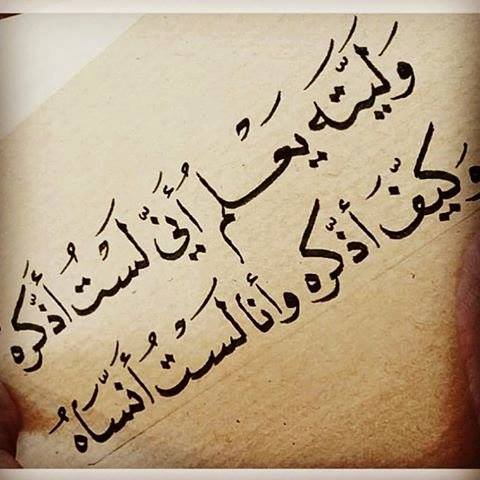 وَلَيتَّه يَعْلم أَنيَّ لَسْتُ أذَّكره
وَكَيفَّ أَذكّره وأنا لَسْتُ أنسَّاهُ